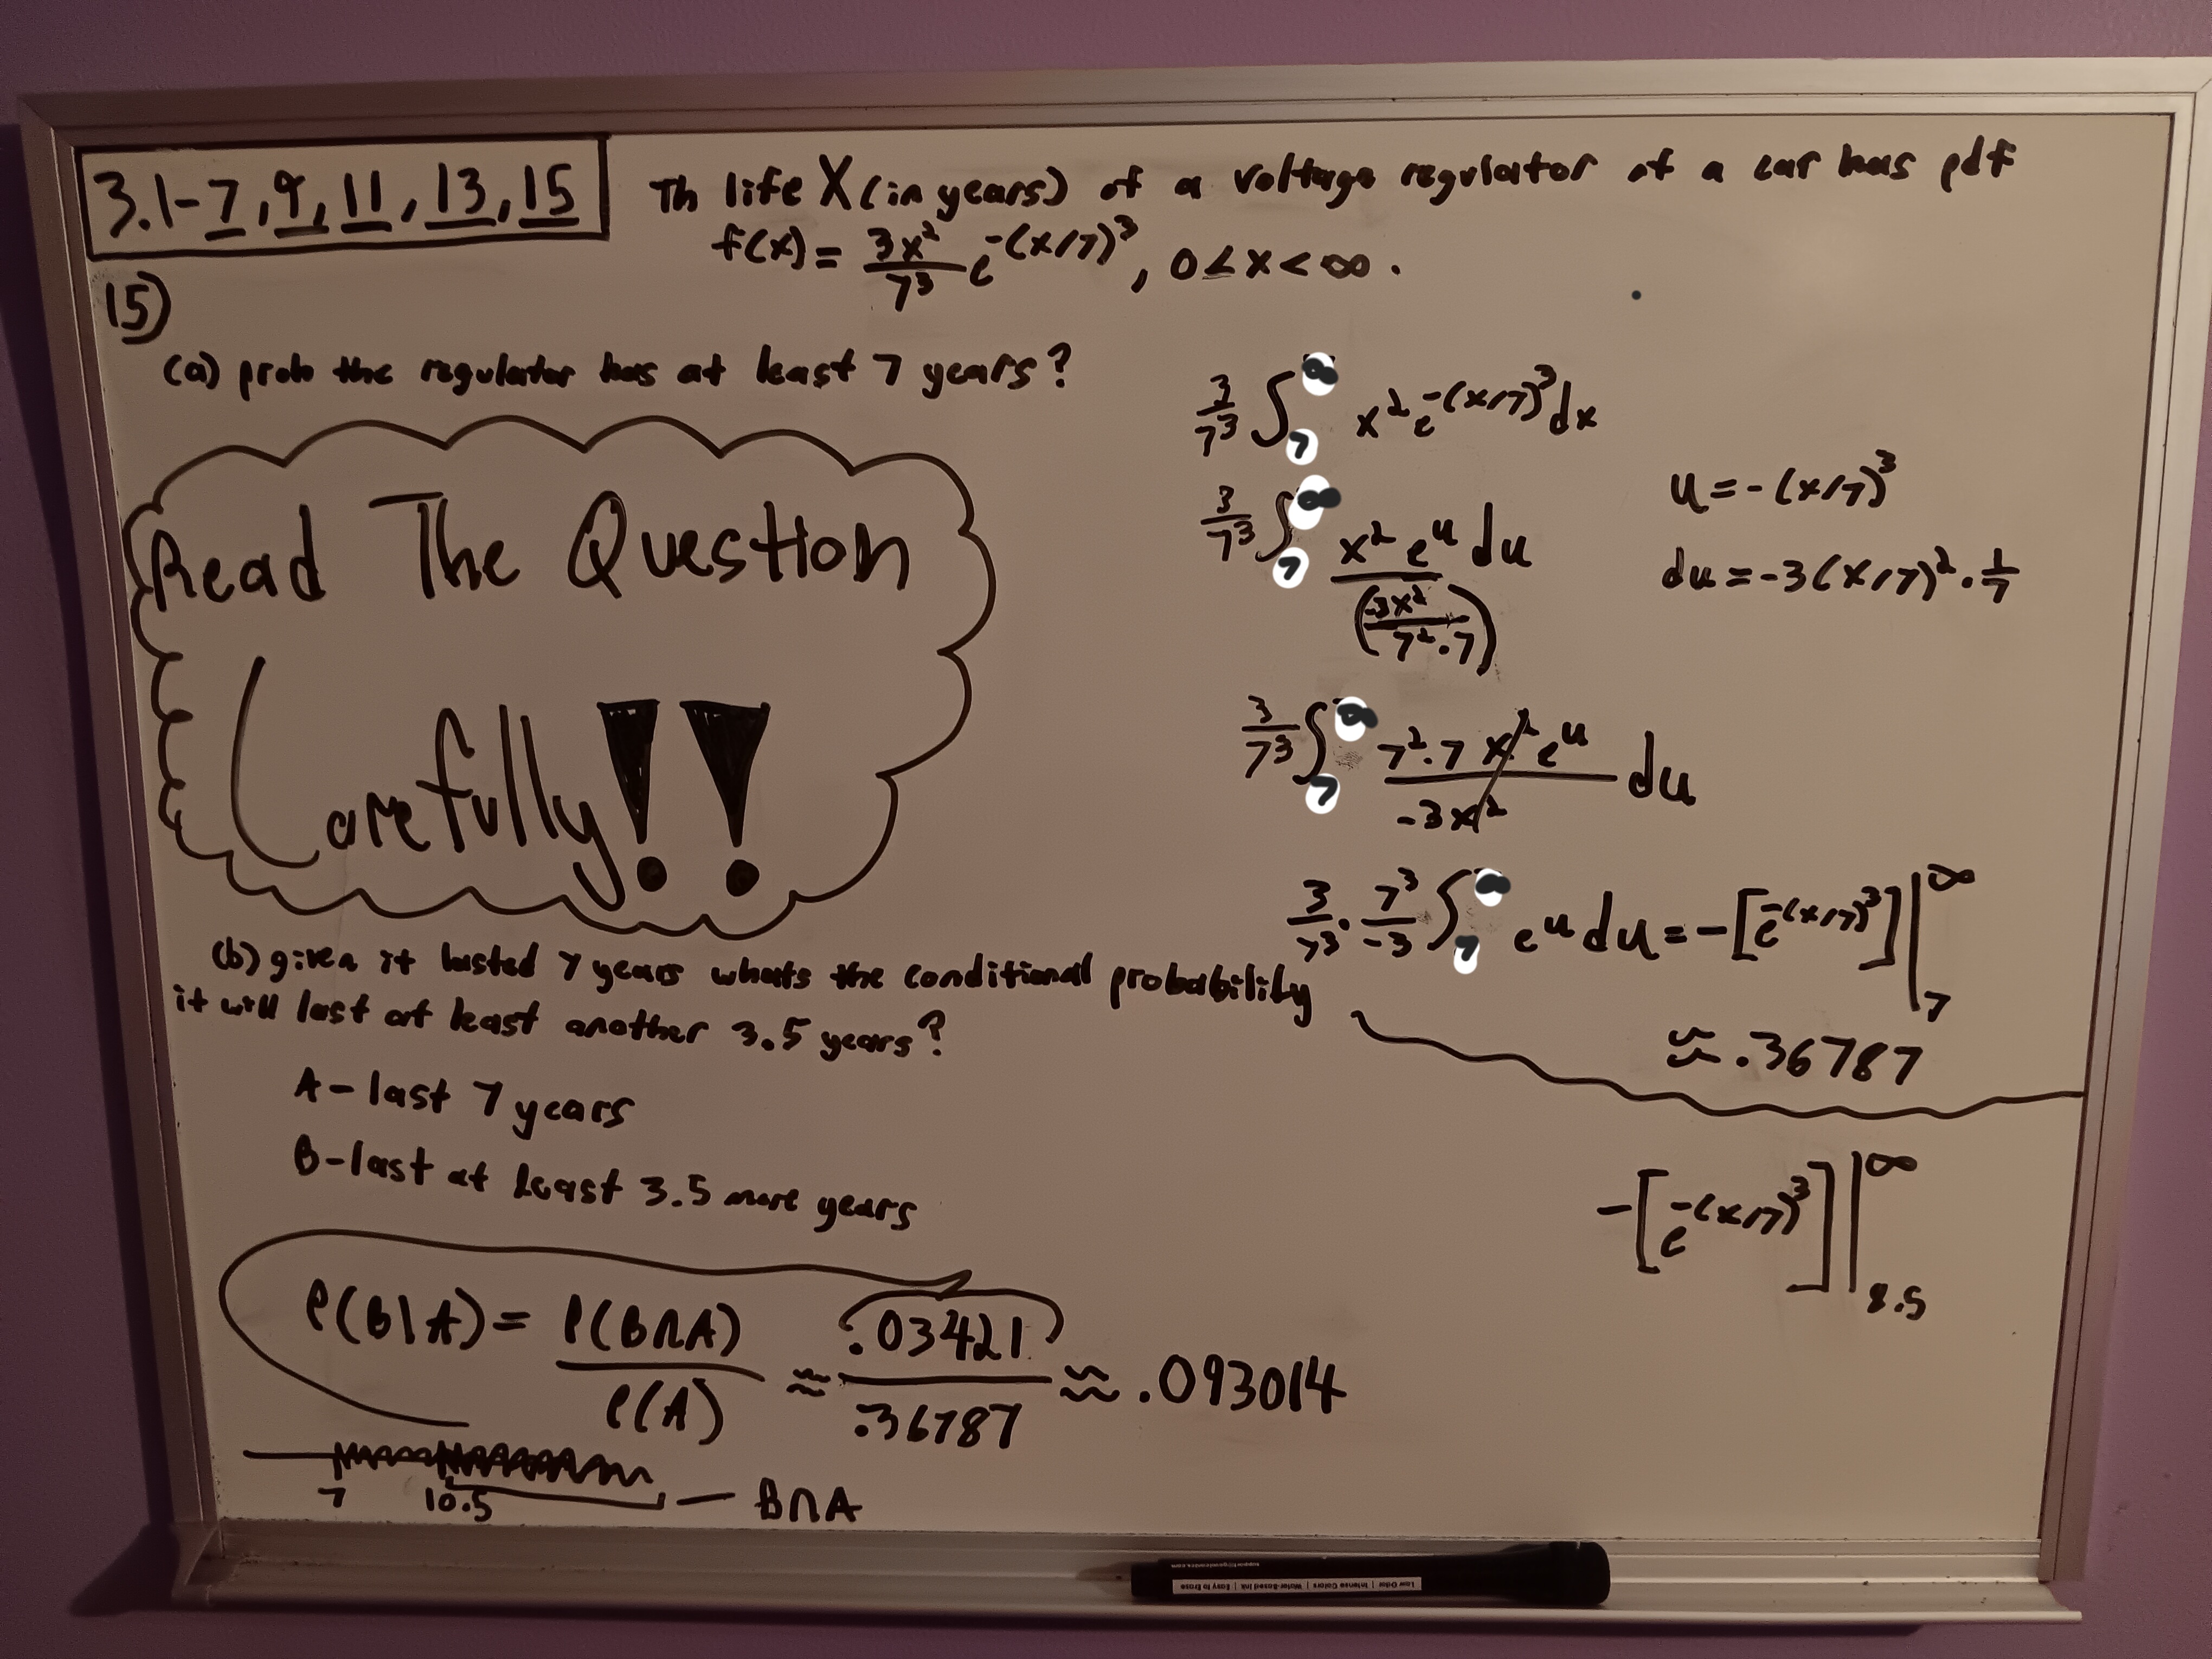 3.1-7,9,11,13,15
Th life X (in years) of a voltage regulator of a car has pdf
f(x) = 3x²/7³ e^-(x/7)³, 0<x<∞.
15)
(a) prob the regulator has at least 7 years?
Read The Question
Carefully!!
3/7³ ∫_7^∞ x² e^-(x/7)³ dx
3/7³ ∫_7^∞ x² e^u du / (-3x²/7²·7)
u = -(x/7)³
du = -3(x/7)² · 1/7
3/7³ ∫_7^∞ 7²·7 x² e^u / -3x² du
3/7³ · 7³/-3 ∫_7^∞ e^u du = -[e^-(x/7)³] |_7^∞
≈ .36787
(b) given it lasted 7 years whats the conditional probability
it will last at least another 3.5 years?
A - last 7 years
B - last at least 3.5 more years
-[e^-(x/7)³] |_8.5^∞
P(B|A) = P(B∩A)/P(A) ≈ .03421/.36787 ≈ .093014
7 10.5 — B∩A
Low Odor | Intense Colors | Water-Based Ink | Easy to Erase